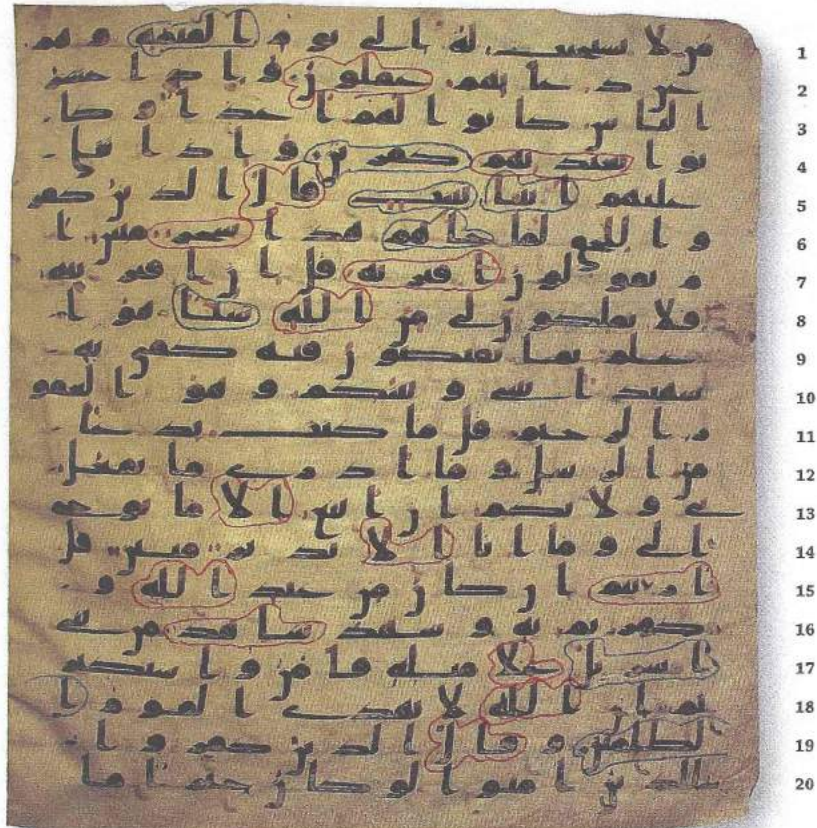 من لا يستجيب له الى يوم القيمة وهم 1
عن دعائهم غفلون واذا حشر 2
الناس كانوا لهم اعدا وكا 3
نوا بعبدتهم كفرين واذا تتلى 4
عليهم ايتنا بينت قال الذين كفر 5
وا للحق لما جاهم هذا سحر مبين ا 6
م يقولون افتريه قل ان افتريته 7
فلا تملكون لي من الله شيا هو ا 8
علم بما تفيضون فيه كفى به 9
شهيدا بيني وبينكم وهو الغفو 10
ر الرحيم قل ما كنت بدعا 11
من الرسل وما ادري ما يفعل 12
بي ولا بكم ان اتبع الا ما يوحى 13
الي وما انا الا نذير مبين قل 14
اريتم ان كان من عند الله و 15
كفرتم به وشهد شاهد من بني 16
اسريل على مثله فامن واستكبر 17
تم ان الله لا يهدي القوم ا 18
لظلمين وقال الذين كفروا 19
للذين امنوا لو كان خيرا ما 20